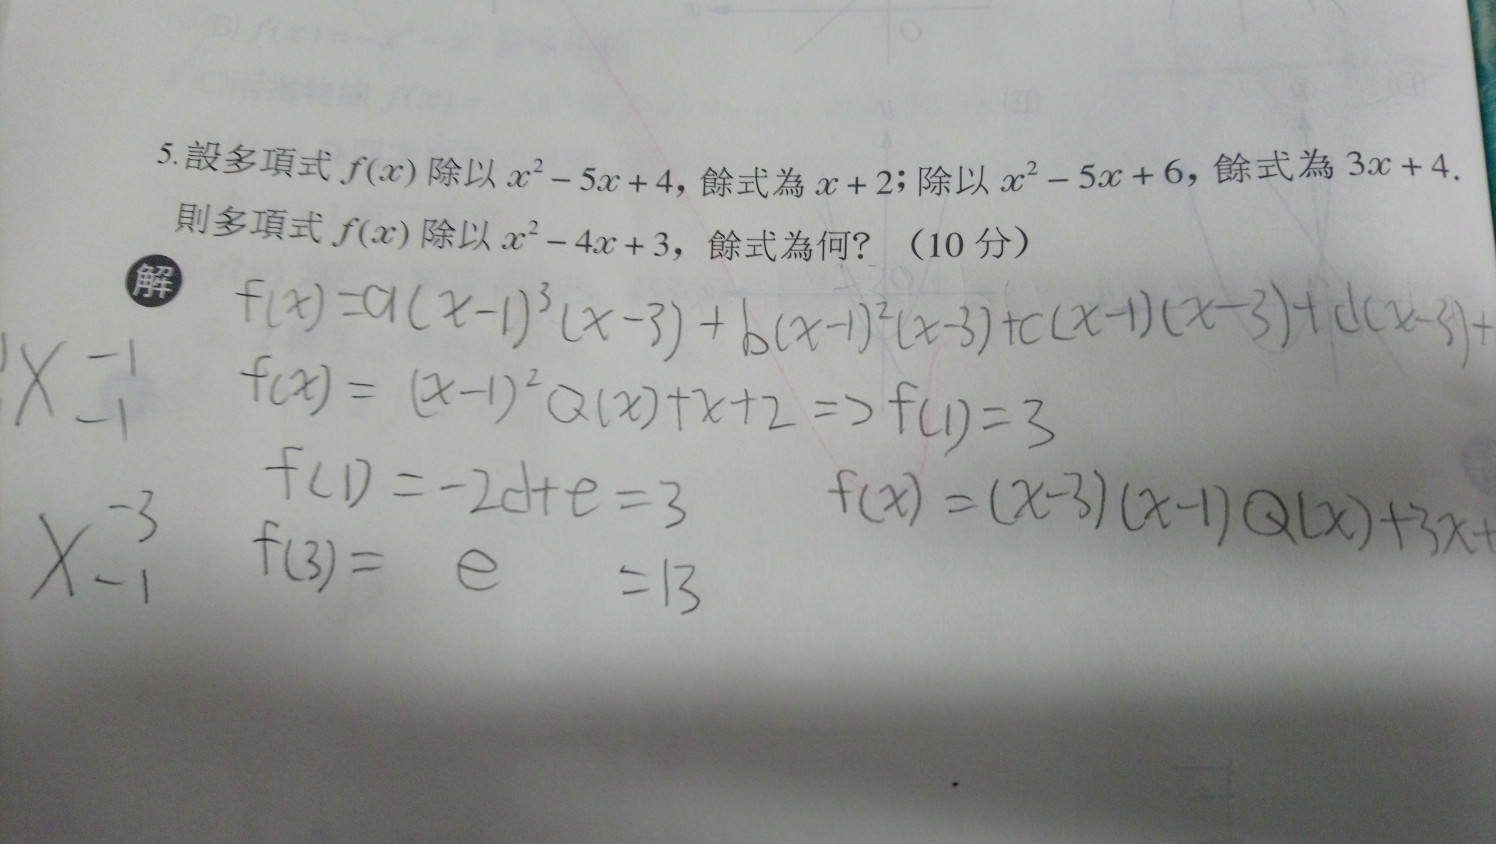 5.設多項式 f(x) 除以 x² − 5x + 4, 餘式為 x + 2; 除以 x² − 5x + 6, 餘式為 3x + 4.
則多項式 f(x) 除以 x² − 4x + 3, 餘式為何? (10 分)
解
f(x)=a(x-1)³(x-3)+b(x-1)²(x-3)+c(x-1)(x-3)+d(x-3)+
f(x)= (x-1)²Q(x)+x+2 => f(1)=3
X -1
-1
f(1) = -2d+e = 3
f(x) = (x-3)(x-1)Q(x)+3x+
f(3) = e =13
X -3
-1